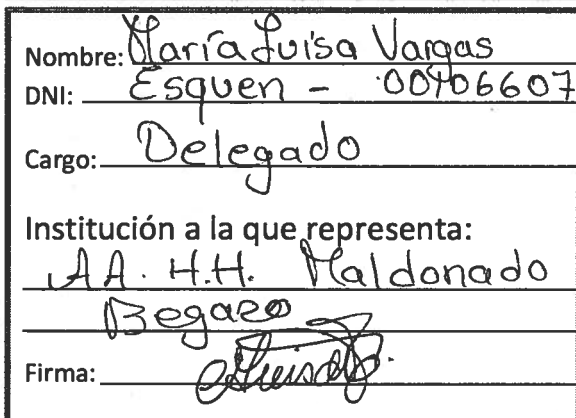 Nombre: María Luisa Vargas
DNI: Esquen - 00406607
Cargo: Delegado
Institución a la que representa:
AA. H.H. Maldonado
Begazo
Firma: Luisa